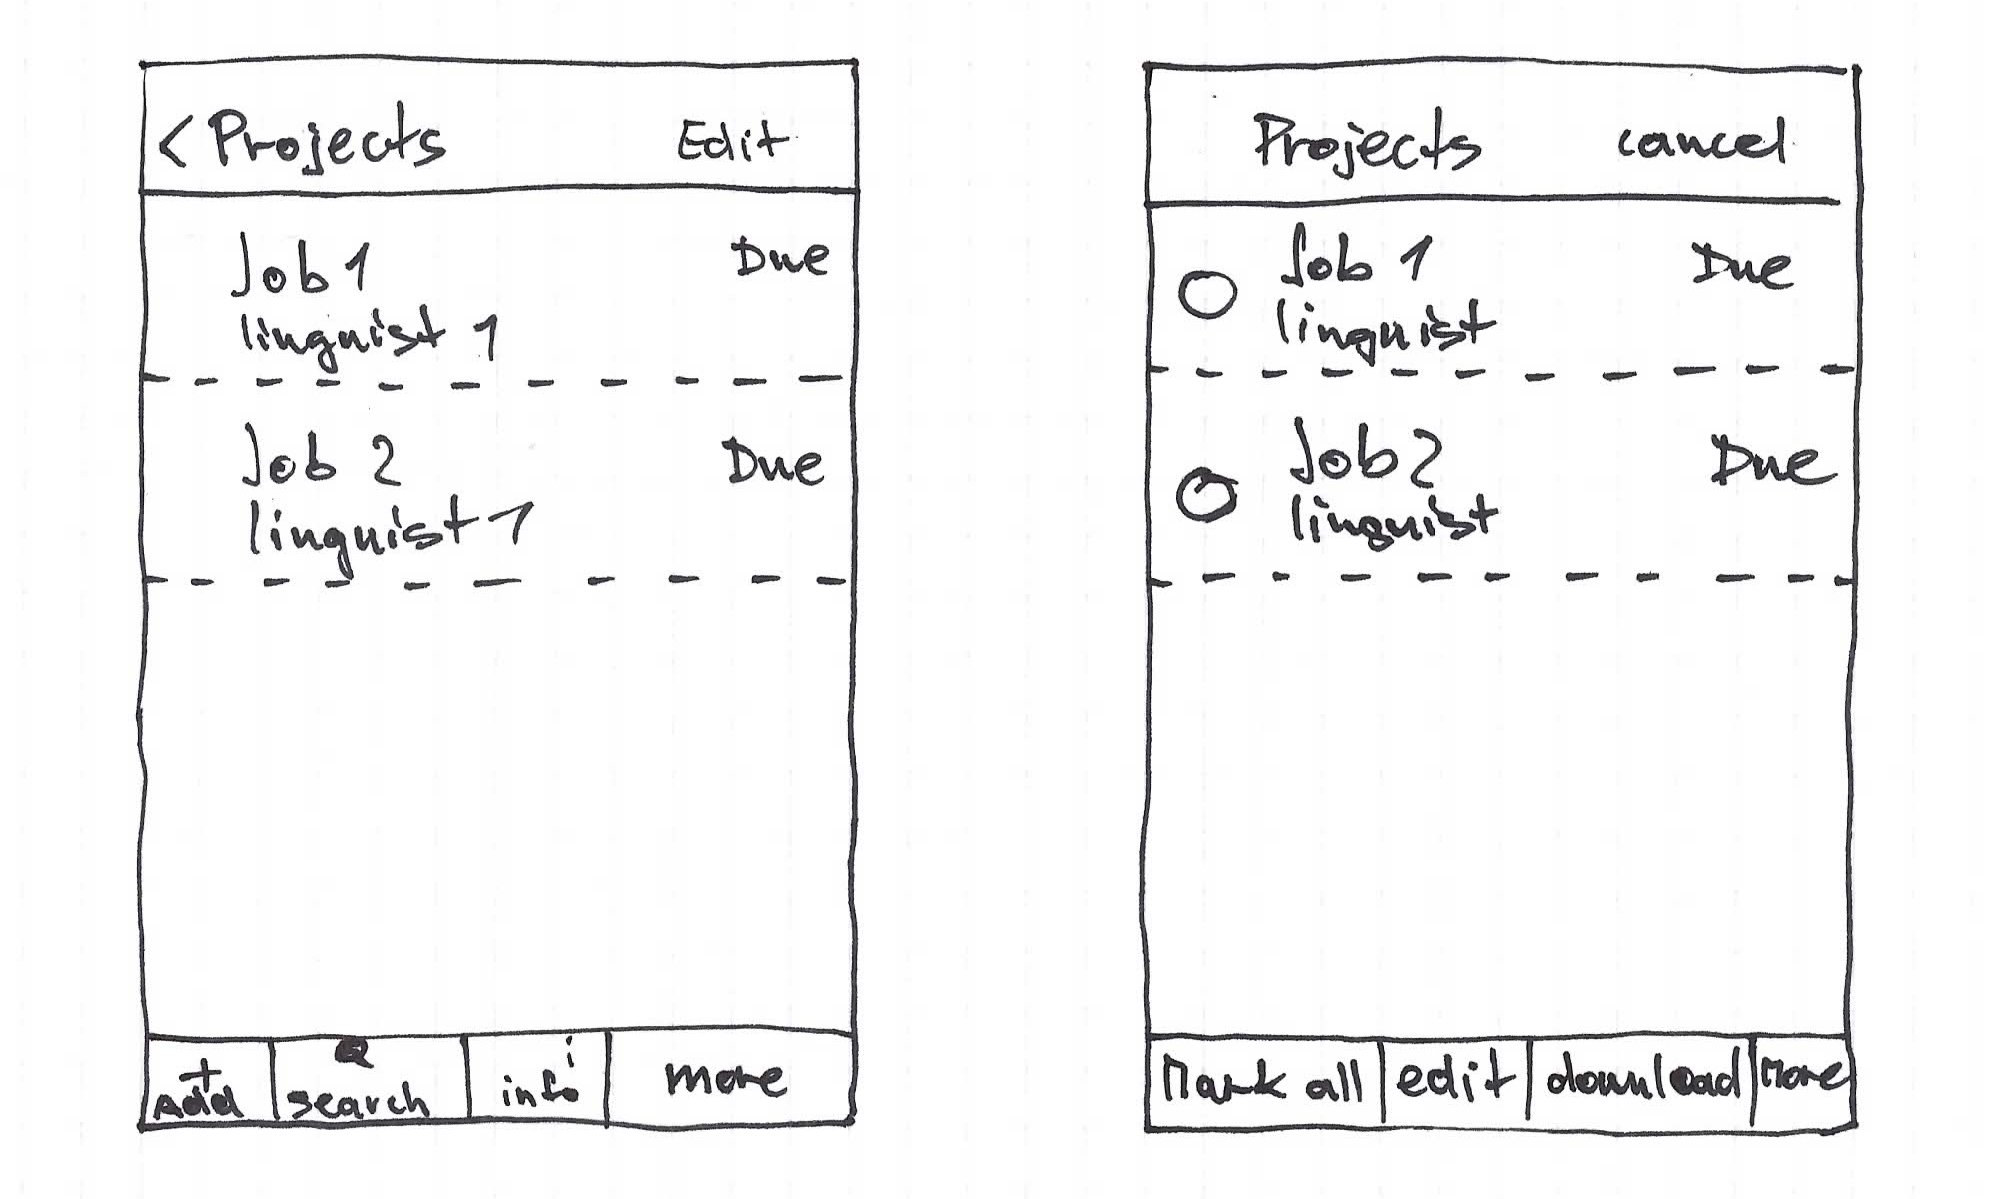 < Projects Edit
Job 1 Due
linguist 1
Job 2 Due
linguist 1
+
Add
search
i
info
more
Projects cancel
Job 1 Due
linguist
Job 2 Due
linguist
Mark all edit download More